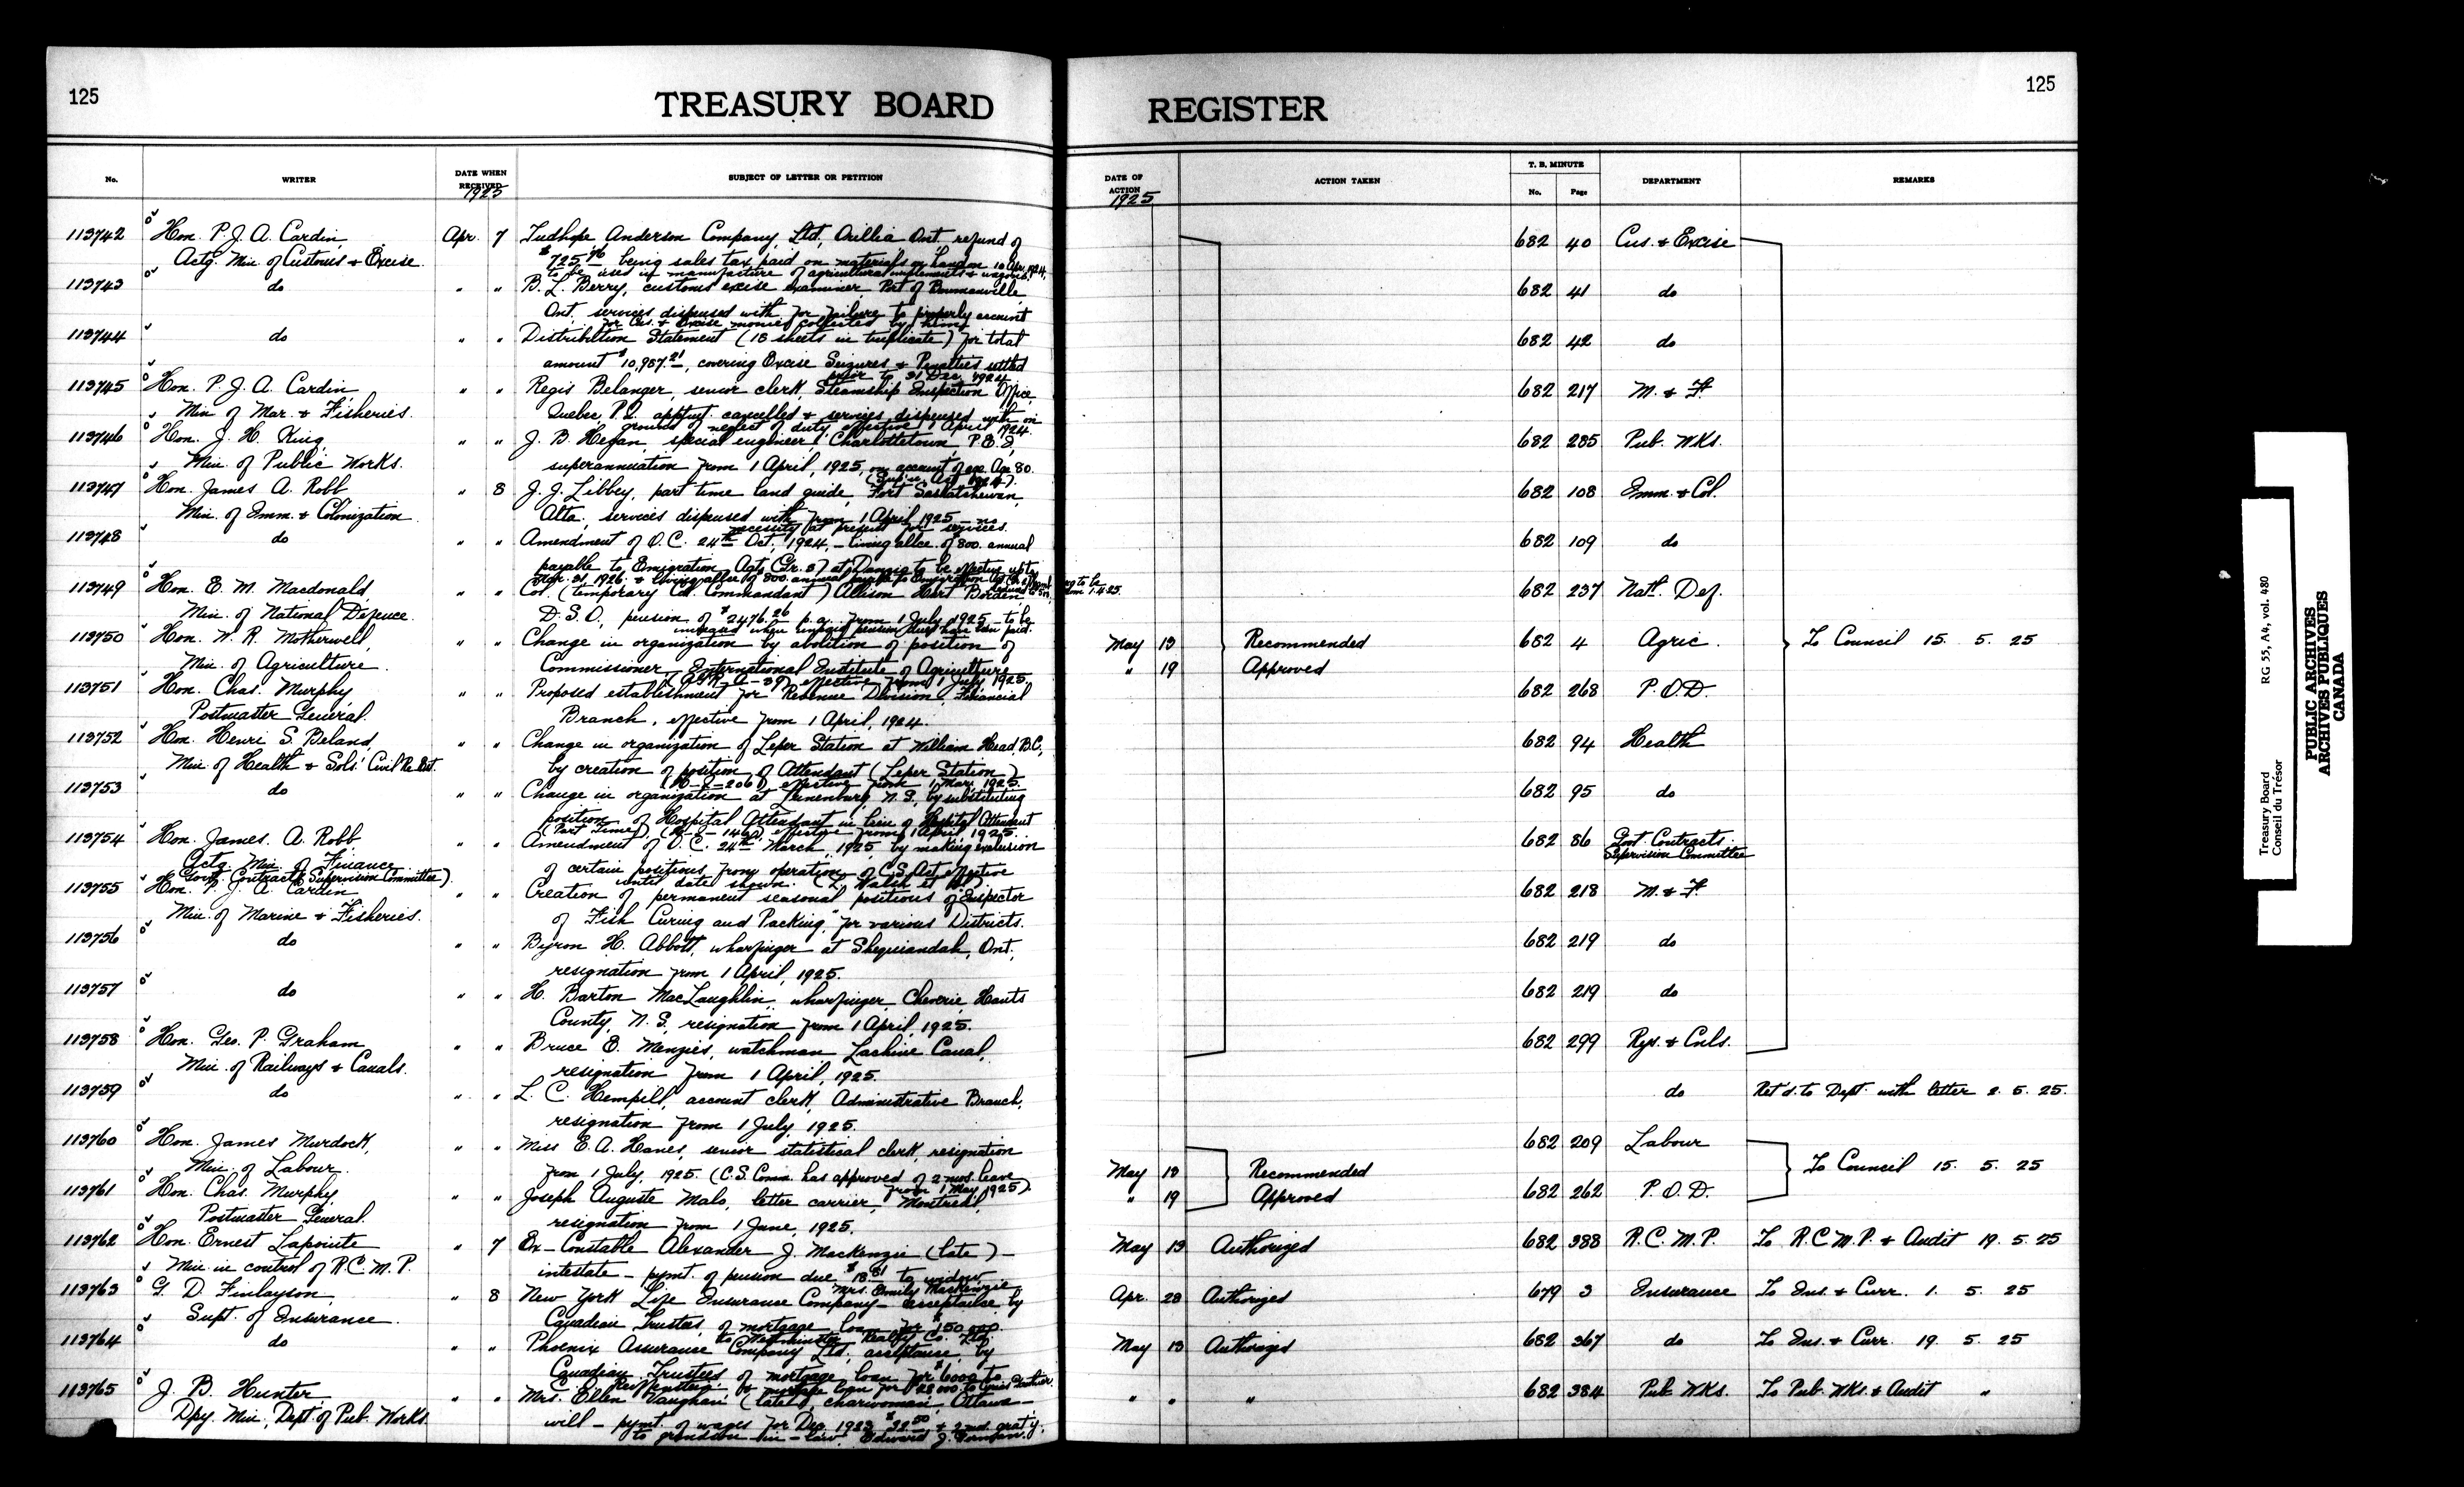 125
TREASURY BOARD
No.
WRITER
DATE WHEN RECEIVED
1925
SUBJECT OF LETTER OR PETITION
113742 Hon. P. J. A. Cardin, Apr. 7 Tudhope Anderson Company, Ltd, Orillia Ont. refund of
Actg. Min. of Customs & Excise. $725.96 being sales tax paid on materials on hand on 10 Apr. 1924,
to be used in manufacture of agricultural implements & wagons.
113743 do " " B. L. Berry, customs excise examiner, Port of Bowmanville,
Ont. services dispensed with for failure to properly account
for Cus. & Excise monies collected by him.
113744 do " " Distribution Statement (18 sheets in triplicate) for total
amount $10,987.21, covering Excise Seizures & Penalties settled
prior to 31 Dec. 1924.
113745 Hon. P. J. A. Cardin " " Regis Belanger, senior clerk, Steamship Inspection Office,
Min. of Mar. & Fisheries. Quebec, P.Q. apptmt. cancelled & services dispensed with on
grounds of neglect of duty, effective 1 April 1924.
113746 Hon. J. H. King, " " J. B. Hegan, special engineer, Charlottetown, P.E.I,
Min. of Public Works. superannuation from 1 April, 1925, on account of age. Age 80.
(Sup'n. Act, 1924).
113747 Hon. James A. Robb " 8 J. J. Libbey, part time land guide, Fort Saskatchewan,
Min. of Imm. & Colonization. Alta. services dispensed with from 1 April 1925 - no
necessity at present for services.
113748 do " " Amendment of O.C. 24th Oct., 1924, - living allce. of $800. annual
payable to Emigration Agt. (Gr. 3) at Danzig to be effective up to
Mar. 31, 1926. & living allce of 800. annual payable to Emigration Agt.
113749 Hon. E. M. Macdonald, " " Col. (temporary Col. Commandant) Allison Hart Borden,
Min. of National Defence. D.S.O, pension of $2476.26 p.a. from 1 July 1925 - to be
increased when unpaid pension dues have been paid.
113750 Hon. W. R. Motherwell, " " Change in organization by abolition of position of
Min. of Agriculture. Commissioner, International Institute of Agriculture
effective from 1 July 1925.
113751 Hon. Chas. Murphy, " " Proposed establishment for Revenue Division, Financial
Postmaster General. Branch, effective from 1 April, 1924.
113752 Hon. Henri S. Beland, " " Change in organization of Leper Station at William Head, B.C,
Min. of Health & Sols' Civil Re-Est. by creation of position of Attendant (Leper Station)
effective from 1 May, 1925.
113753 do " " Change in organization at Lunenburg, N.S., by substituting
position of Hospital Attendant in lieu of Hospital Attendant
(Part Time), effective from 1 April 1925.
113754 Hon. James. A. Robb " " Amendment of O.C. 24th March, 1925, by making exclusion
Actg. Min. of Finance of certain positions from operation of C.S. Act, effective
(Govt. Contracts Supervision Committee). until date shown.
113755 Hon. P. J. A. Cardin " " Creation of permanent seasonal positions of "Inspector
Min. of Marine & Fisheries. of Fish Curing and Packing," for various Districts.
113756 do " " Byron H. Abbott, wharfinger at Sheguiandah, Ont;
resignation from 1 April, 1925.
113757 do " " H. Barton MacLaughlin, wharfinger, Cheverie, Hants
County, N.S, resignation from 1 April, 1925.
113758 Hon. Geo. P. Graham " " Bruce E. Menzies, watchman Lachine Canal,
Min. of Railways & Canals. resignation from 1 April, 1925.
113759 do " " L. C. Hempill, account clerk, Administrative Branch,
resignation from 1 July, 1925.
113760 Hon. James Murdock, " " Miss E. A. Hanes, senior statistical clerk, resignation
Min. of Labour. from 1 July, 1925 (C.S. Comm. has approved of 2 mos. leave
from 1 May, 1925).
113761 Hon. Chas. Murphy, " " Joseph Auguste Malo, letter carrier, Montreal,
Postmaster General. resignation from 1 June, 1925.
113762 Hon. Ernest Lapointe " 7 Ex-Constable Alexander J. Mackenzie (late) -
Min. in control of R.C.M.P. intestate - pymt. of pension due $18.81 to widow
Mrs. Emily Mackenzie
113763 G. D. Finlayson, " 8 New York Life Insurance Company - acceptance by
Supt. of Insurance. Canadian Trustees, of mortgage loan for $150,000.
to Westminster Realty Co. Ltd.
113764 do " " Phoenix Assurance Company Ltd. acceptance by
Canadian Trustees of mortgage loan for $6000 to
113765 J. B. Hunter, " " Mrs. Ellen Vaughan (late), charwoman, Ottawa -
Dpy. Min., Dept. of Pub. Works. will - pymt. of wages for Dec. 1923 $32.50 & 2 mos. grat'y.
to grandson-in-law, Edward J.
REGISTER
125
DATE OF ACTION
1925
ACTION TAKEN
T. B. MINUTE
No.
Page
DEPARTMENT
REMARKS
682 40 Cus. & Excise
682 41 do
682 42 do
682 217 M. & F.
682 285 Pub. Wks.
682 108 Imm. & Col.
682 109 do
682 237 Natl. Def.
May 13 Recommended 682 4 Agric. To Council 15. 5. 25
" 19 Approved
682 268 P.O.D.
682 94 Health
682 95 do
682 86 Govt. Contracts
Supervision Committee
682 218 M. & F.
682 219 do
682 219 do
682 299 Rys. & Cnls.
do Ret'd. to Dept. with letter 2. 5. 25.
682 209 Labour
May 13 Recommended To Council 15. 5. 25
" 19 Approved 682 262 P.O.D.
May 13 Authorized 682 388 R.C.M.P. To R.C.M.P. & Audit 19. 5. 25
Apr. 28 Authorized 679 3 Insurance To Ins. & Curr. 1. 5. 25
May 13 Authorized 682 367 do To Ins. & Curr. 19. 5. 25
" " " 682 384 Pub. Wks. To Pub. Wks. & Audit "
Treasury Board
Conseil du Trésor
RG 55, A4, vol. 480
PUBLIC ARCHIVES
ARCHIVES PUBLIQUES
CANADA